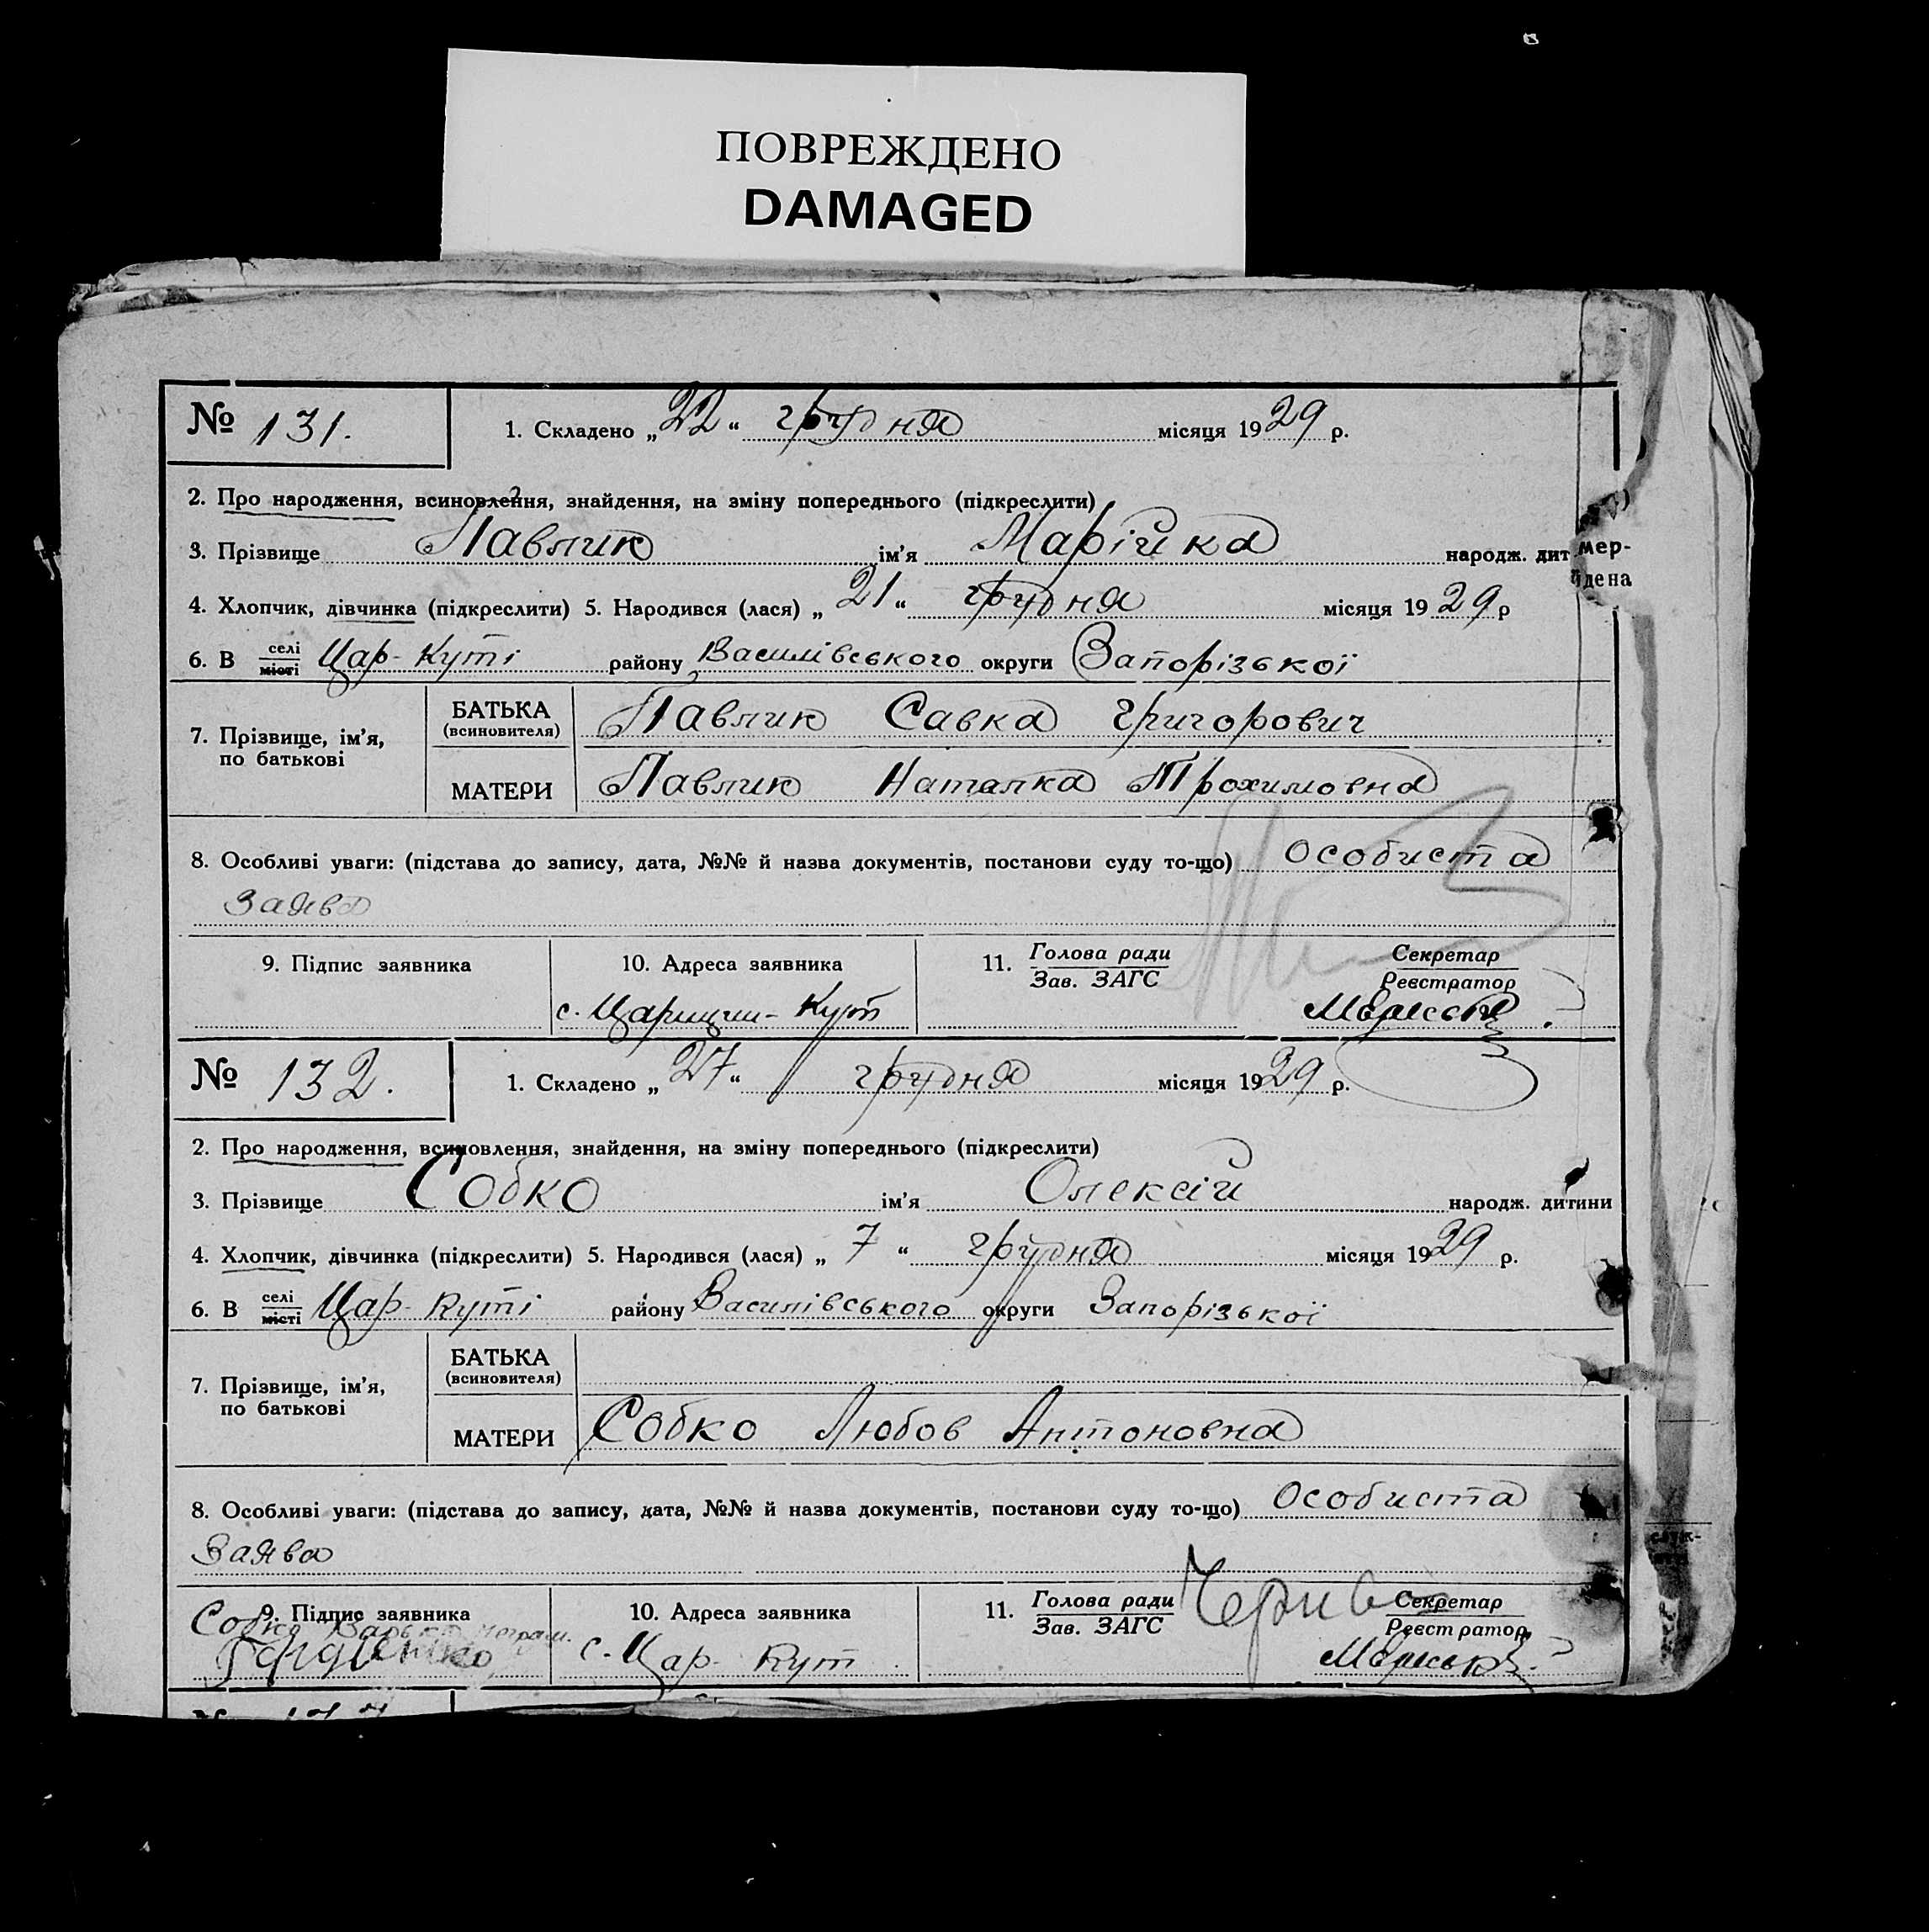 ПОВРЕЖДЕНО
DAMAGED
№ 131. 1. Складено „22“ грудня місяця 1929 р.
2. Про народження, всиновлення, знайдення, на зміну попереднього (підкреслити)
3. Прізвище Павлик ім’я Марійка народж. дит мер-
дена
4. Хлопчик, дівчинка (підкреслити) 5. Народився (лася) „21“ грудня місяця 1929 р
6. В селі місті Цар-Куті району Василівського округи Запорізької
7. Прізвище, ім’я, по батькові
БАТЬКА (всиновителя) Павлик Савка Григорович
МАТЕРИ Павлик Наталка Трохимовна
8. Особливі уваги: (підстава до запису, дата, №№ й назва документів, постанови суду то-що) Особиста
заява
9. Підпис заявника 10. Адреса заявника 11. Голова ради Зав. ЗАГС Секретар Реєстратор
с. Царицин-Кут
№ 132. 1. Складено „27“ грудня місяця 1929 р.
2. Про народження, всиновлення, знайдення, на зміну попереднього (підкреслити)
3. Прізвище Собко ім’я Олексій народж. дитини
4. Хлопчик, дівчинка (підкреслити) 5. Народився (лася) „7“ грудня місяця 1929 р.
6. В селі місті Цар-Куті району Василівського округи Запорізької
7. Прізвище, ім’я, по батькові
БАТЬКА (всиновителя)
МАТЕРИ Собко Любов Антоновна
8. Особливі уваги: (підстава до запису, дата, №№ й назва документів, постанови суду то-що) Особиста
заява
9. Підпис заявника 10. Адреса заявника 11. Голова ради Зав. ЗАГС Секретар Реєстратор
Собко
с. Цар-Кут